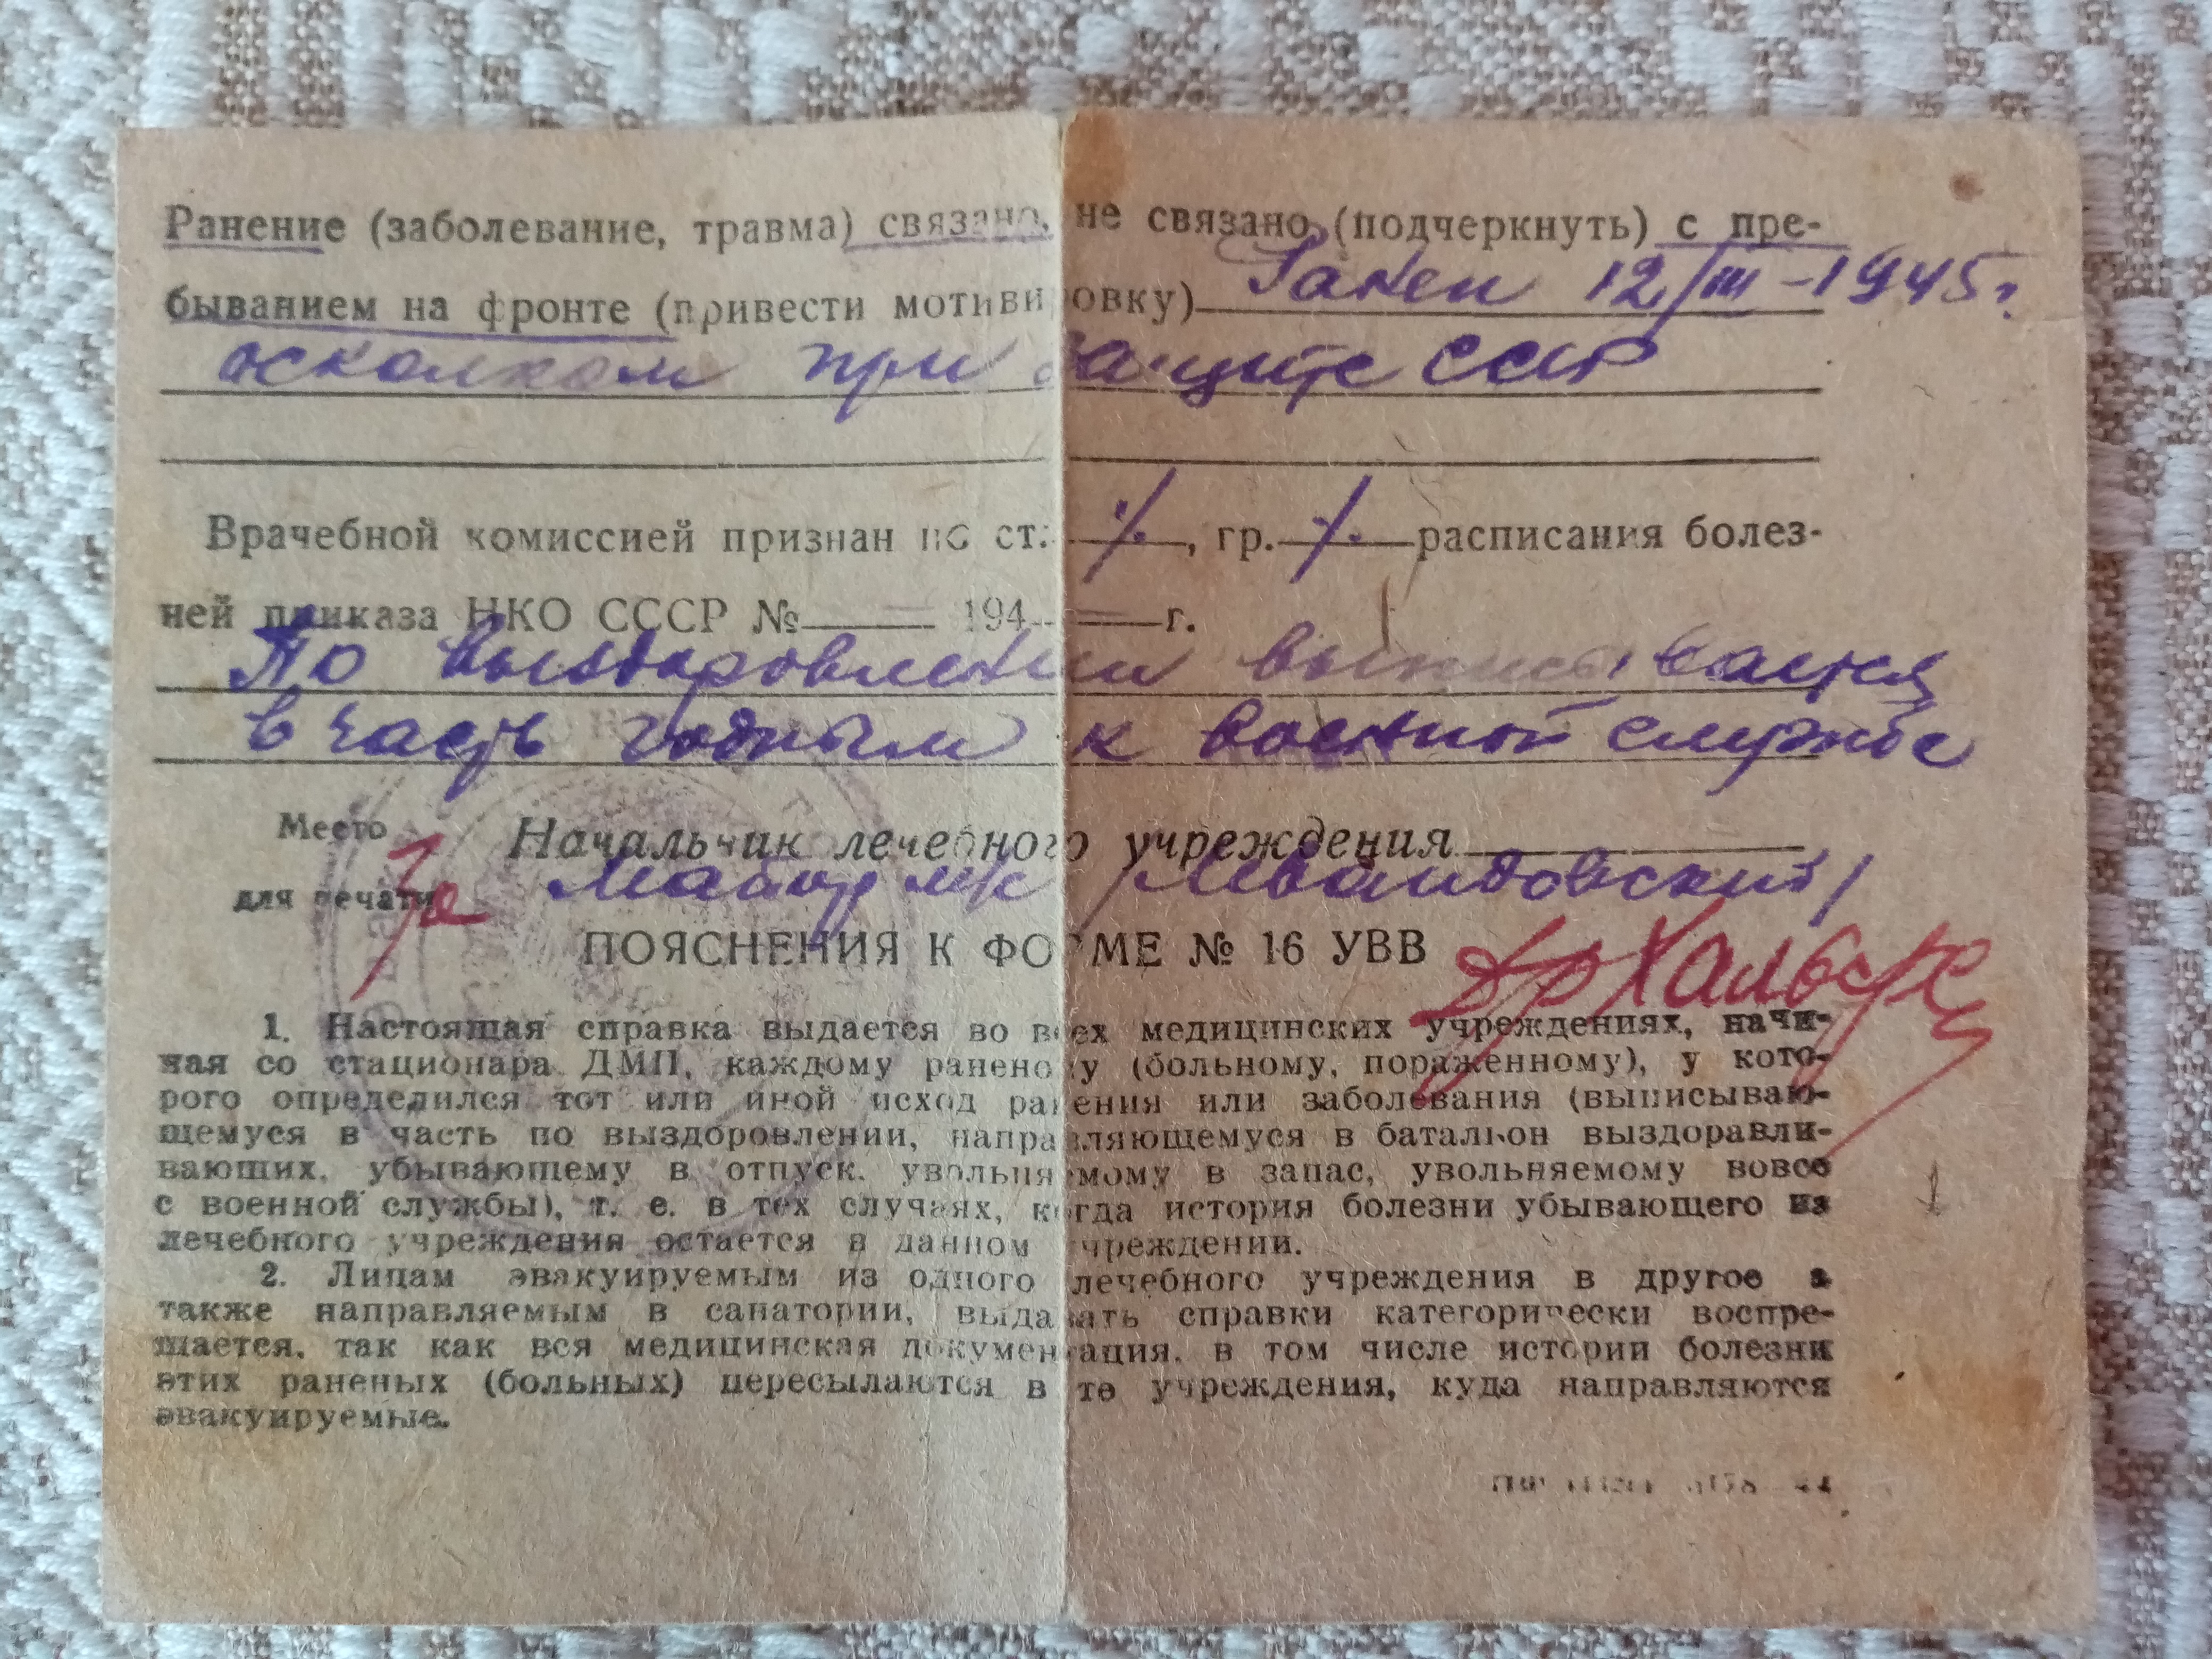 Ранение (заболевание, травма) связано, не связано (подчеркнуть) с пре-
быванием на фронте (привести мотивировку) Ранен 12/III-1945 г.
осколком при защите СССР
Врачебной комиссией признан по ст. ·/·, гр. ·/· расписания болез-
ней приказа НКО СССР № — 194 — г.
По выздоровлении выписывается
в часть годным к военной службе
Место
для печати
Начальник лечебного учреждения
За Майор м/с
ПОЯСНЕНИЯ К ФОРМЕ № 16 УВВ
1. Настоящая справка выдается во всех медицинских учреждениях, начи-
ная со стационара ДМП, каждому раненому (больному, пораженному), у кото-
рого определился тот или иной исход ранения или заболевания (выписываю-
щемуся в часть по выздоровлении, направляющемуся в батальон выздоравли-
вающих, убывающему в отпуск, увольняемому в запас, увольняемому вовсе
с военной службы), т. е. в тех случаях, когда история болезни убывающего из
лечебного учреждения остается в данном учреждении.
2. Лицам эвакуируемым из одного лечебного учреждения в другое а
также направляемым в санатории, выдавать справки категорически воспре-
щается, так как вся медицинская документация, в том числе истории болезни
этих раненых (больных) пересылаются в те учреждения, куда направляются
эвакуируемые.